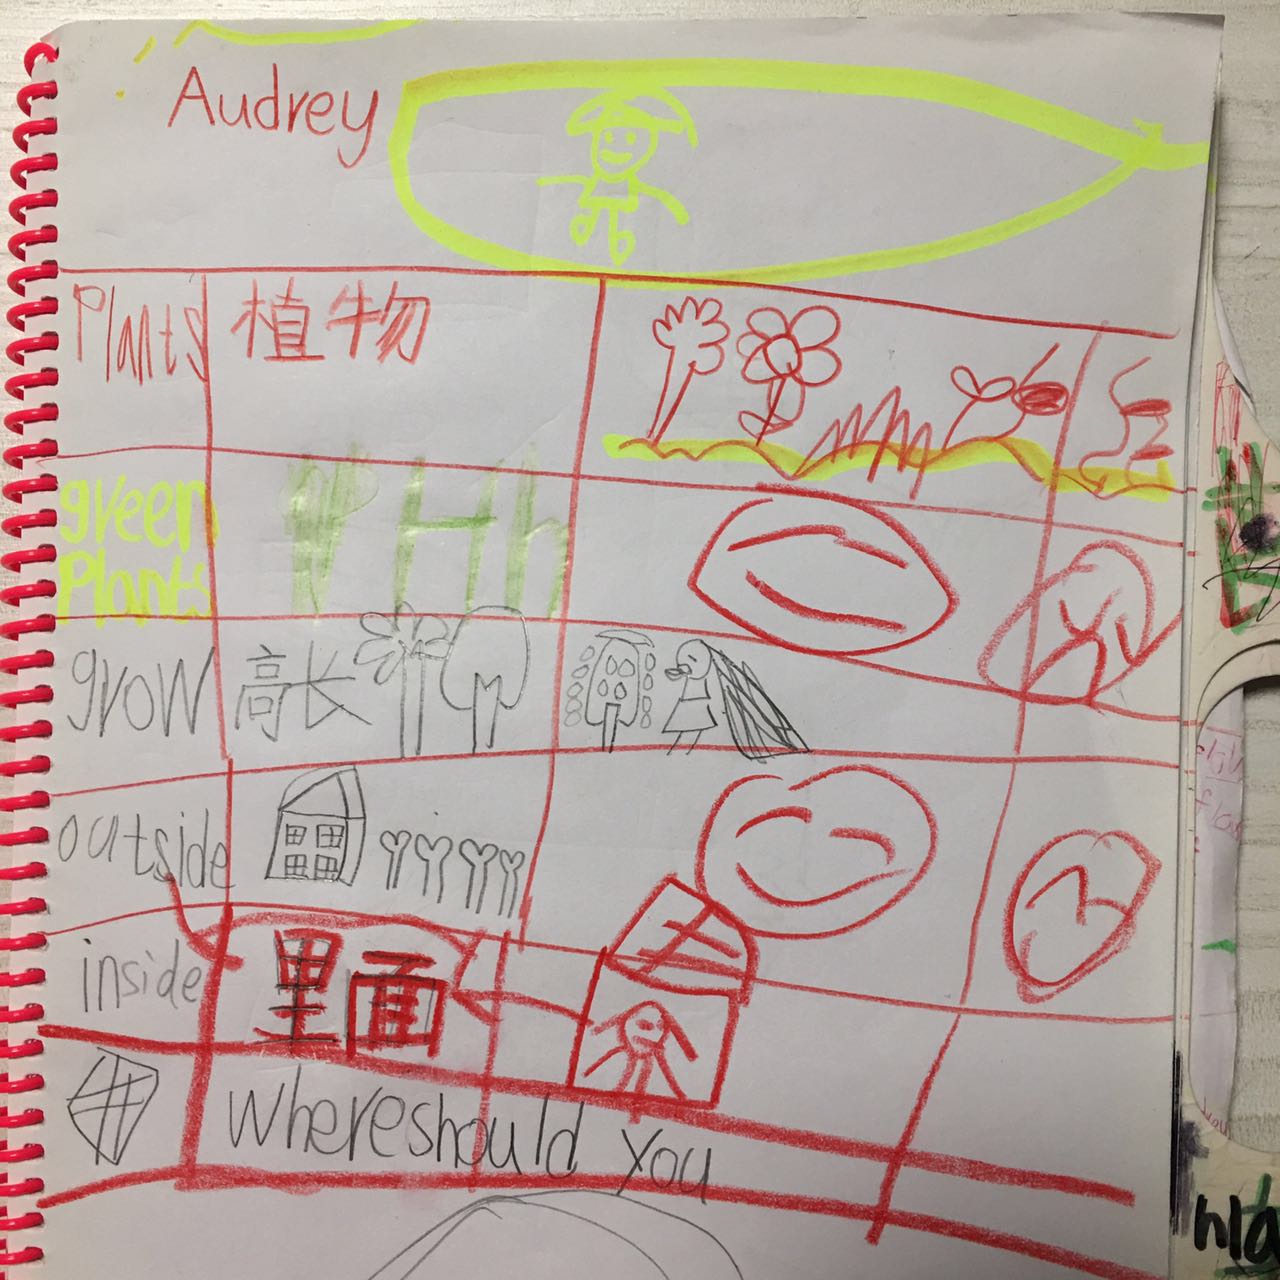 Audrey
Plants 植物
green
Plants
grow 高长
outside
inside 里面
where should you